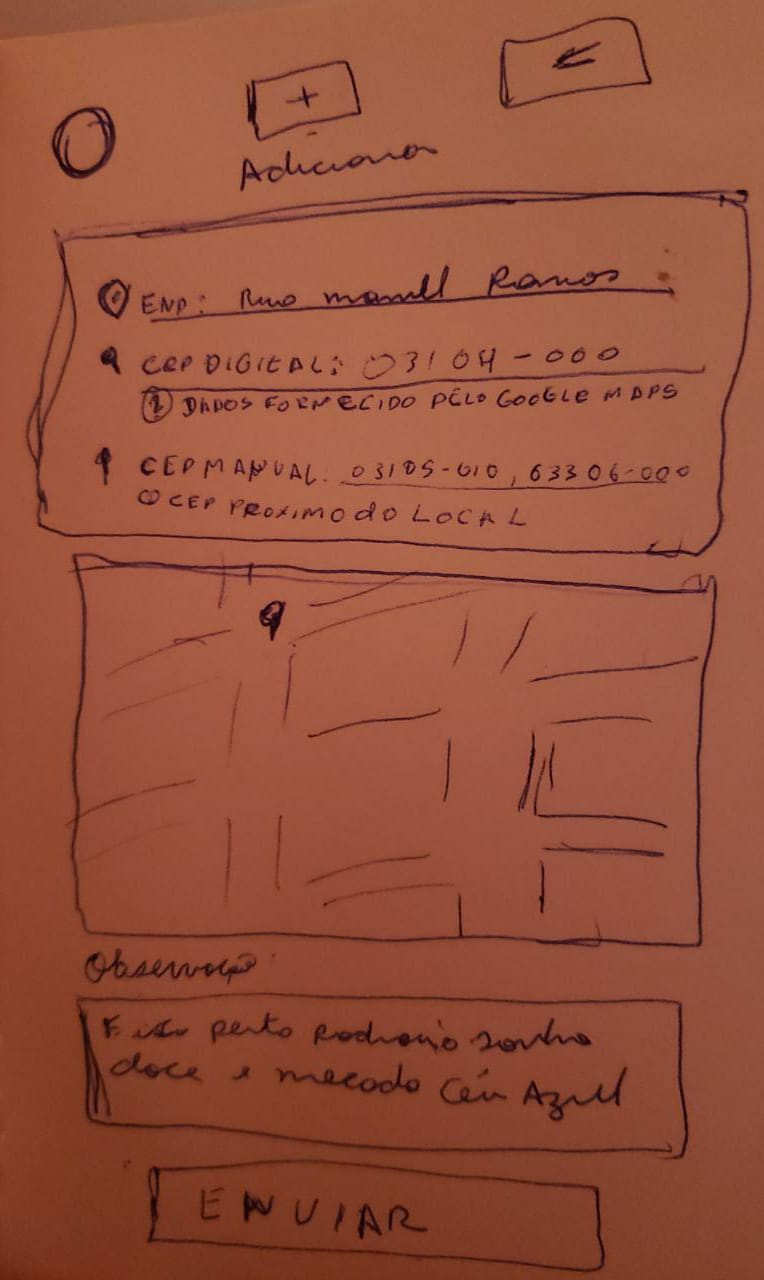 +
←
Adicionar
END: Rua manuel Ramos
CEP DIGITAL: 03104-000
DADOS FORNECIDO PELO GOOGLE MAPS
CEP MANUAL: 03105-010, 63306-000
CEP PROXIMO do LOCAL
Observação
Fica perto Padraria sonho
doce e mecado Céu Azul
ENVIAR